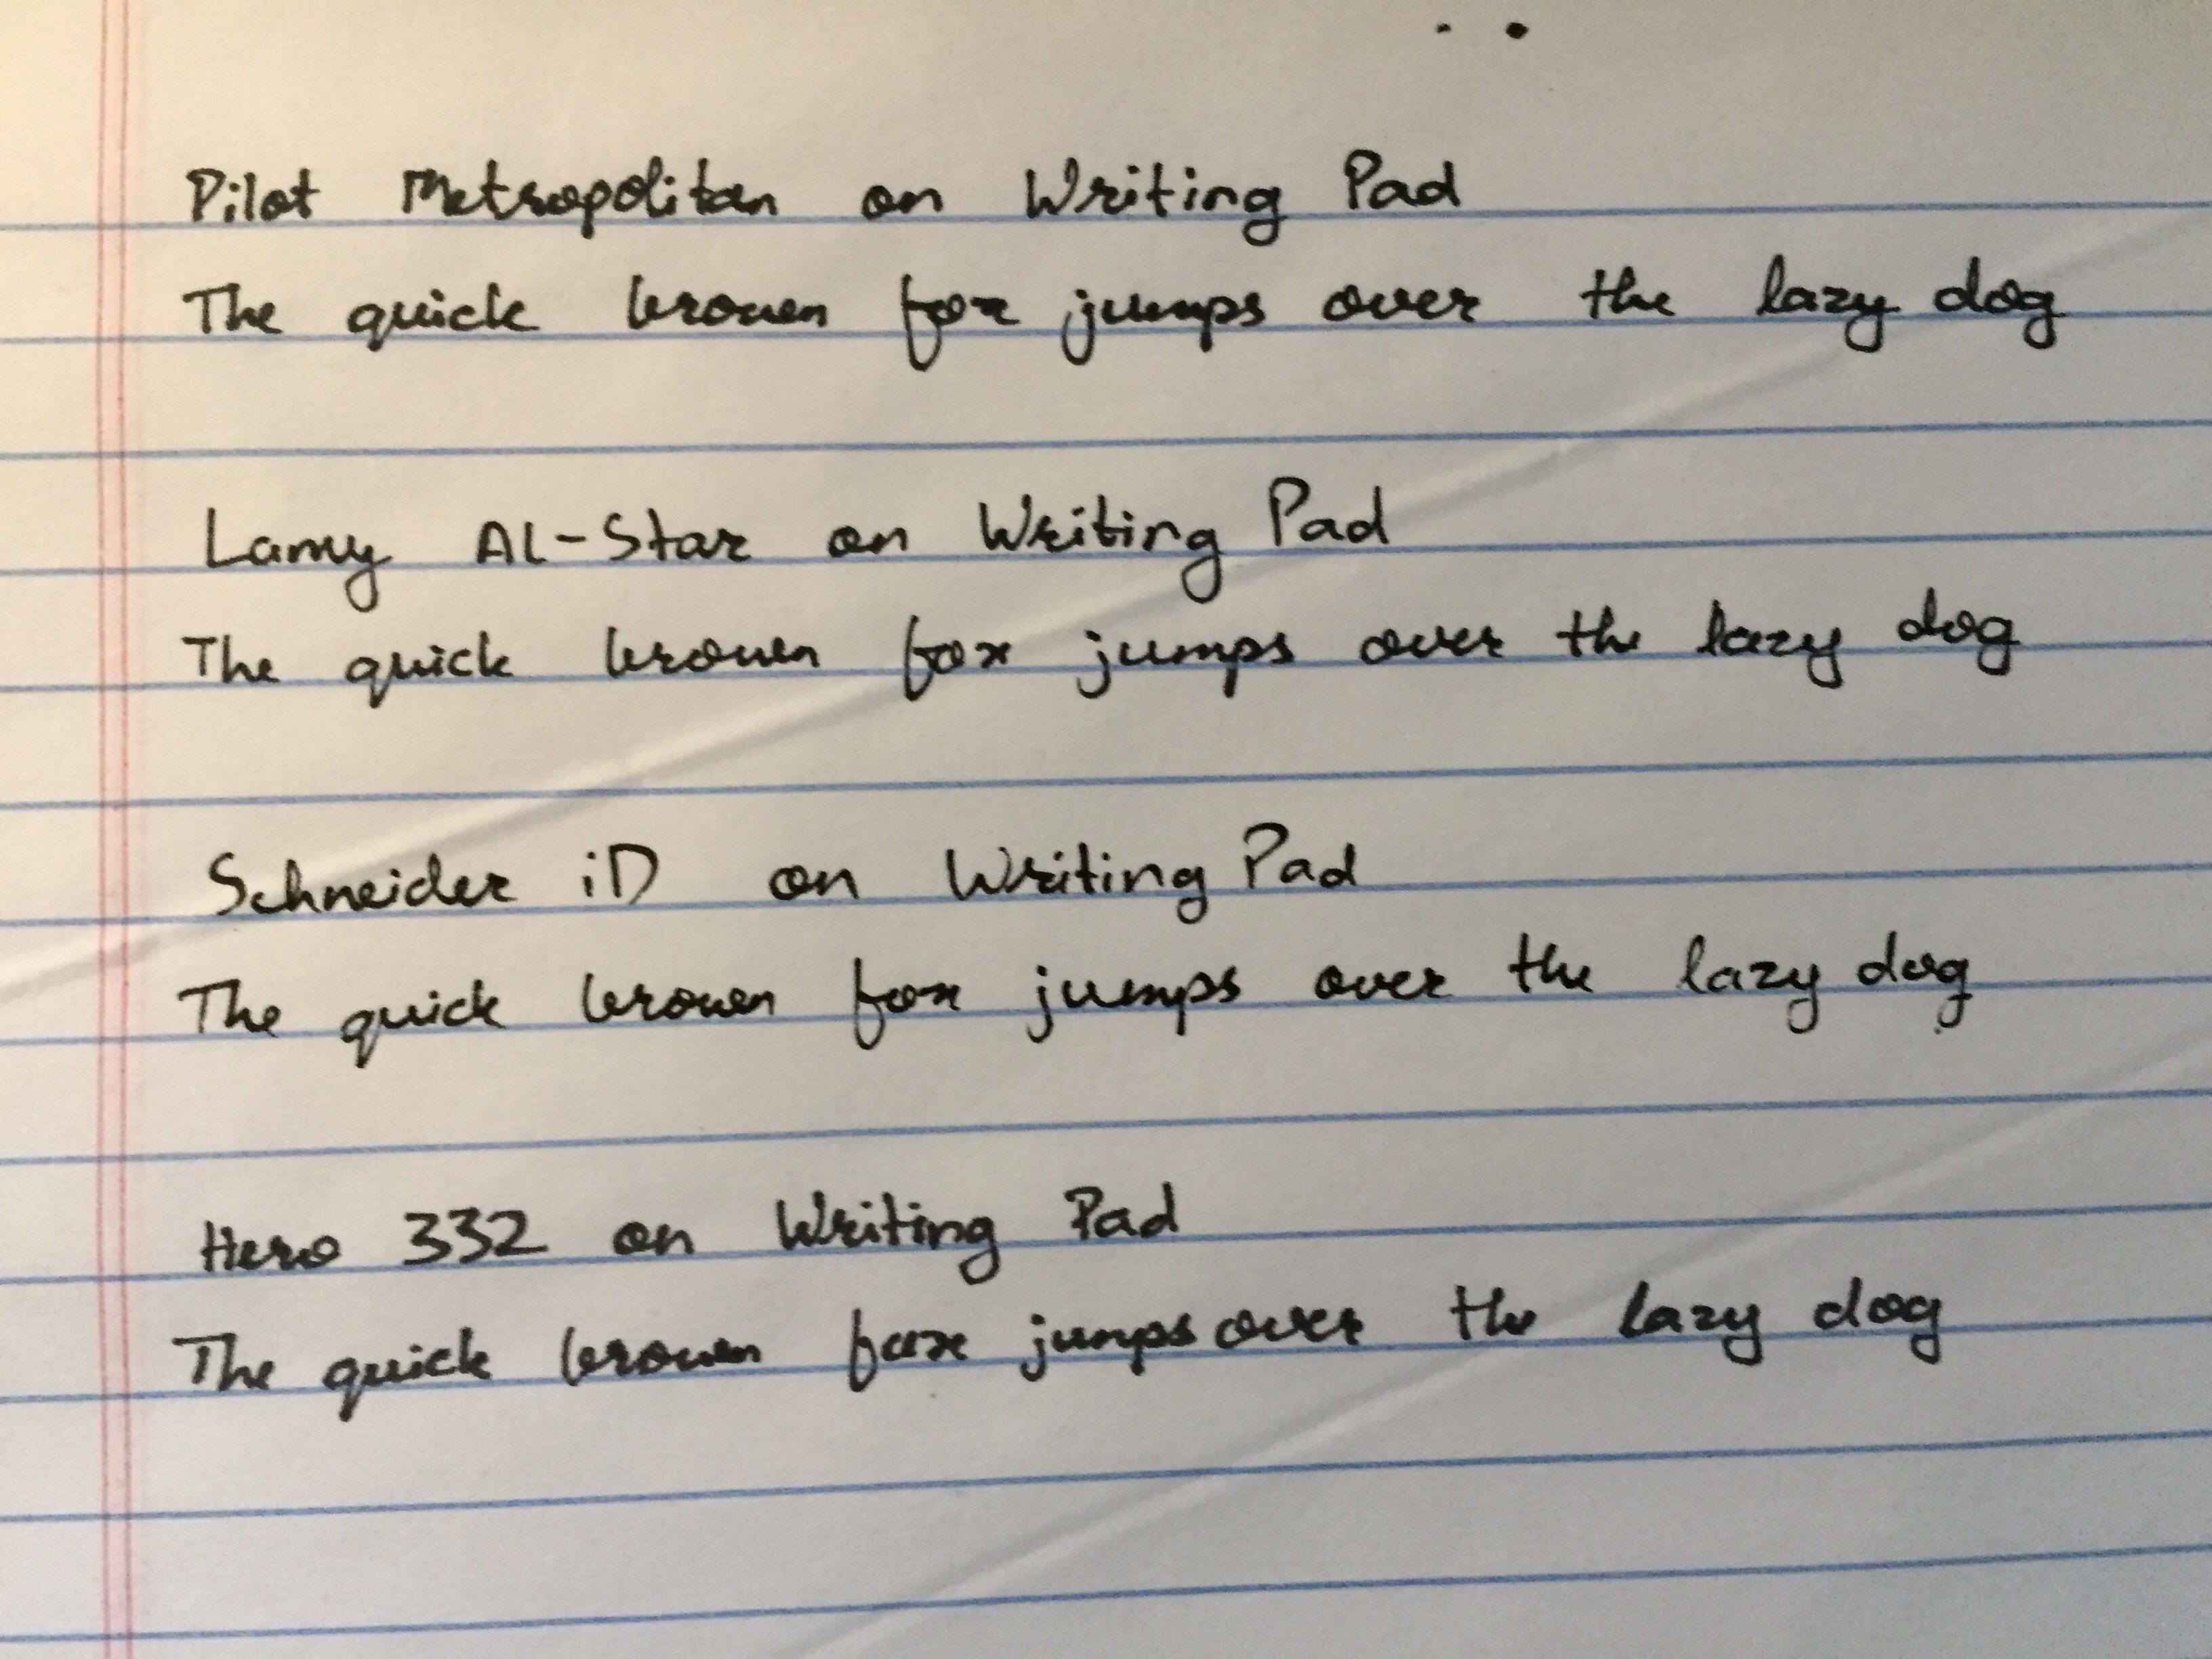 Pilot Metropolitan on Writing Pad
The quick brown fox jumps over the lazy dog
Lamy AL-Star on Writing Pad
The quick brown fox jumps over the lazy dog
Schneider iD on Writing Pad
The quick brown fox jumps over the lazy dog
Hero 332 on Writing Pad
The quick brown fox jumps over the lazy dog